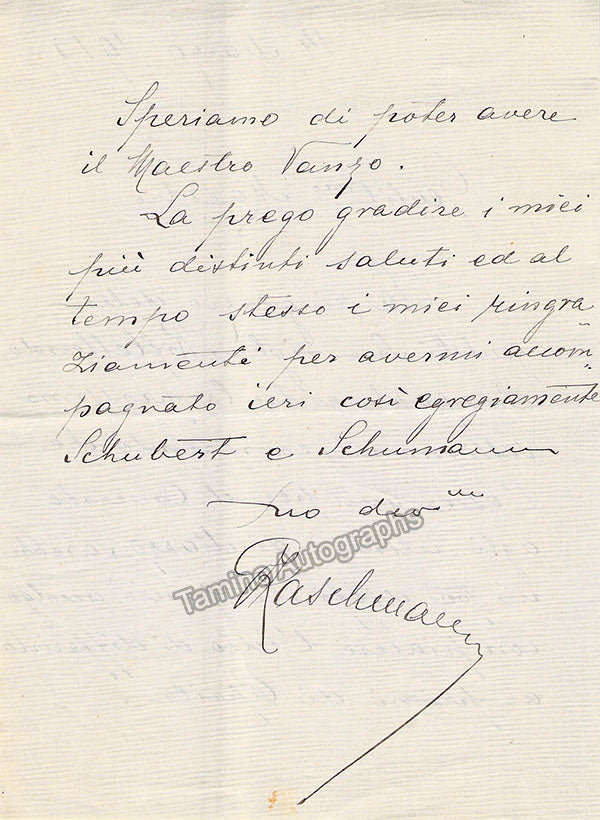 Speriamo di poter avere
il Maestro Vanzo.
La prego gradire i miei
più distinti saluti ed al
tempo stesso i miei ringra
ziamenti per avermi accom=
pagnato ieri così egregiamente
Schubert e Schumann
Suo dev.mo
Raschmann
Tamino Autographs